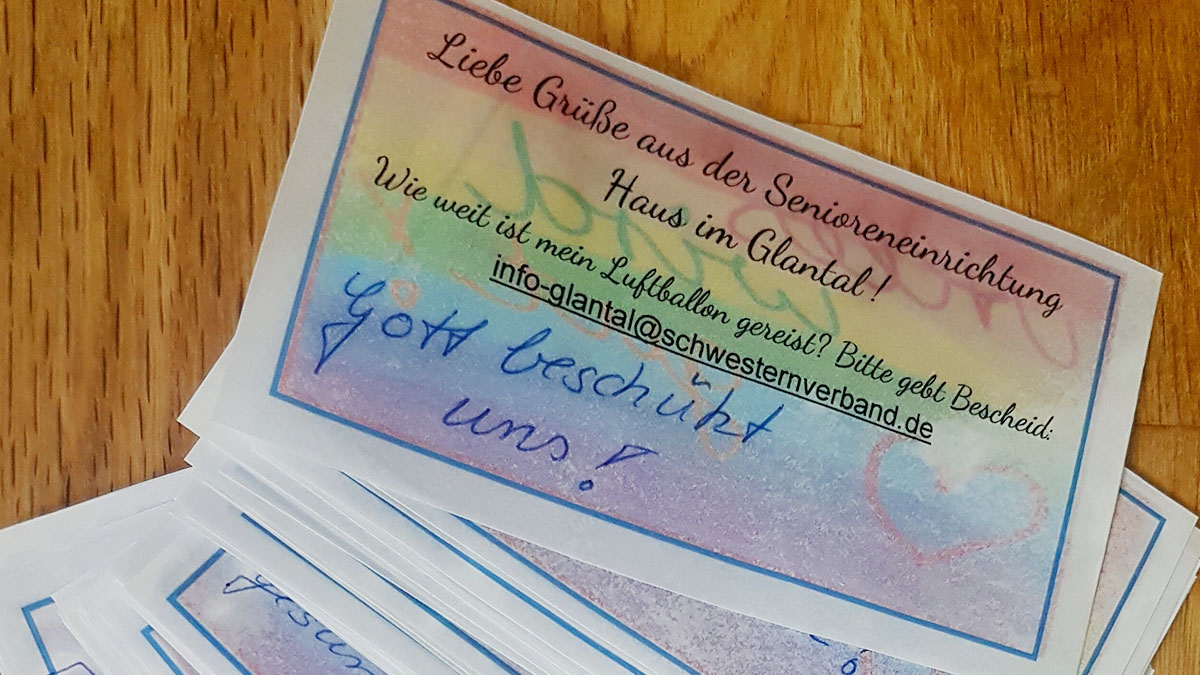 Liebe Grüße aus der Senioreneinrichtung
Haus im Glantal !
Wie weit ist mein Luftballon gereist? Bitte gebt Bescheid:
info-glantal@schwesternverband.de
Gott beschützt
uns!